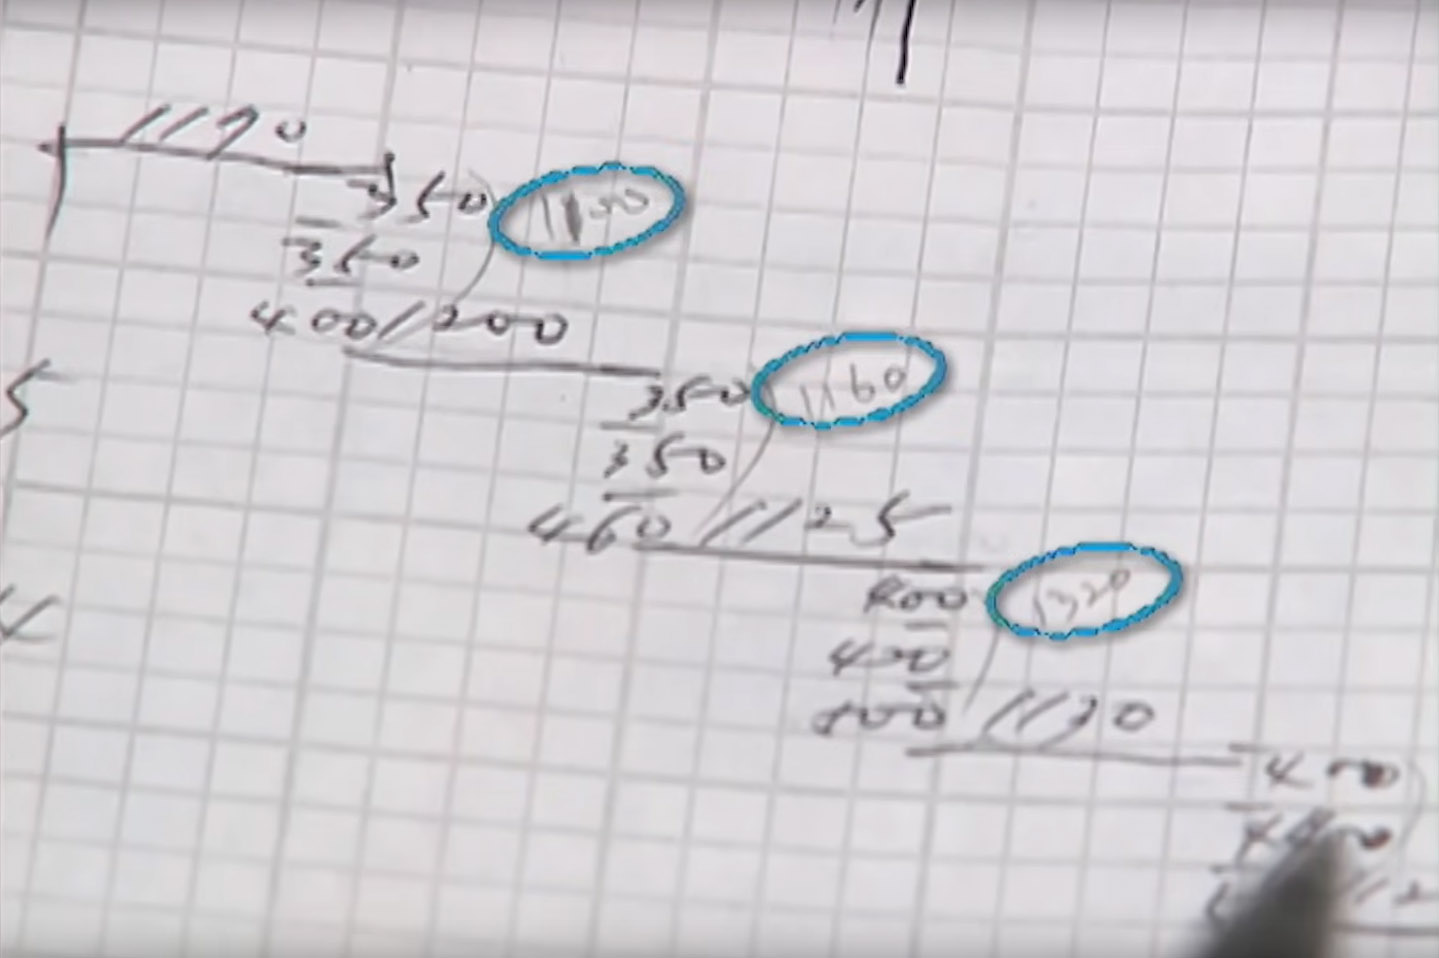 1190
350 1100
350
400/200
350 1160
350
460 1125
5
400 1320
400
1130
400